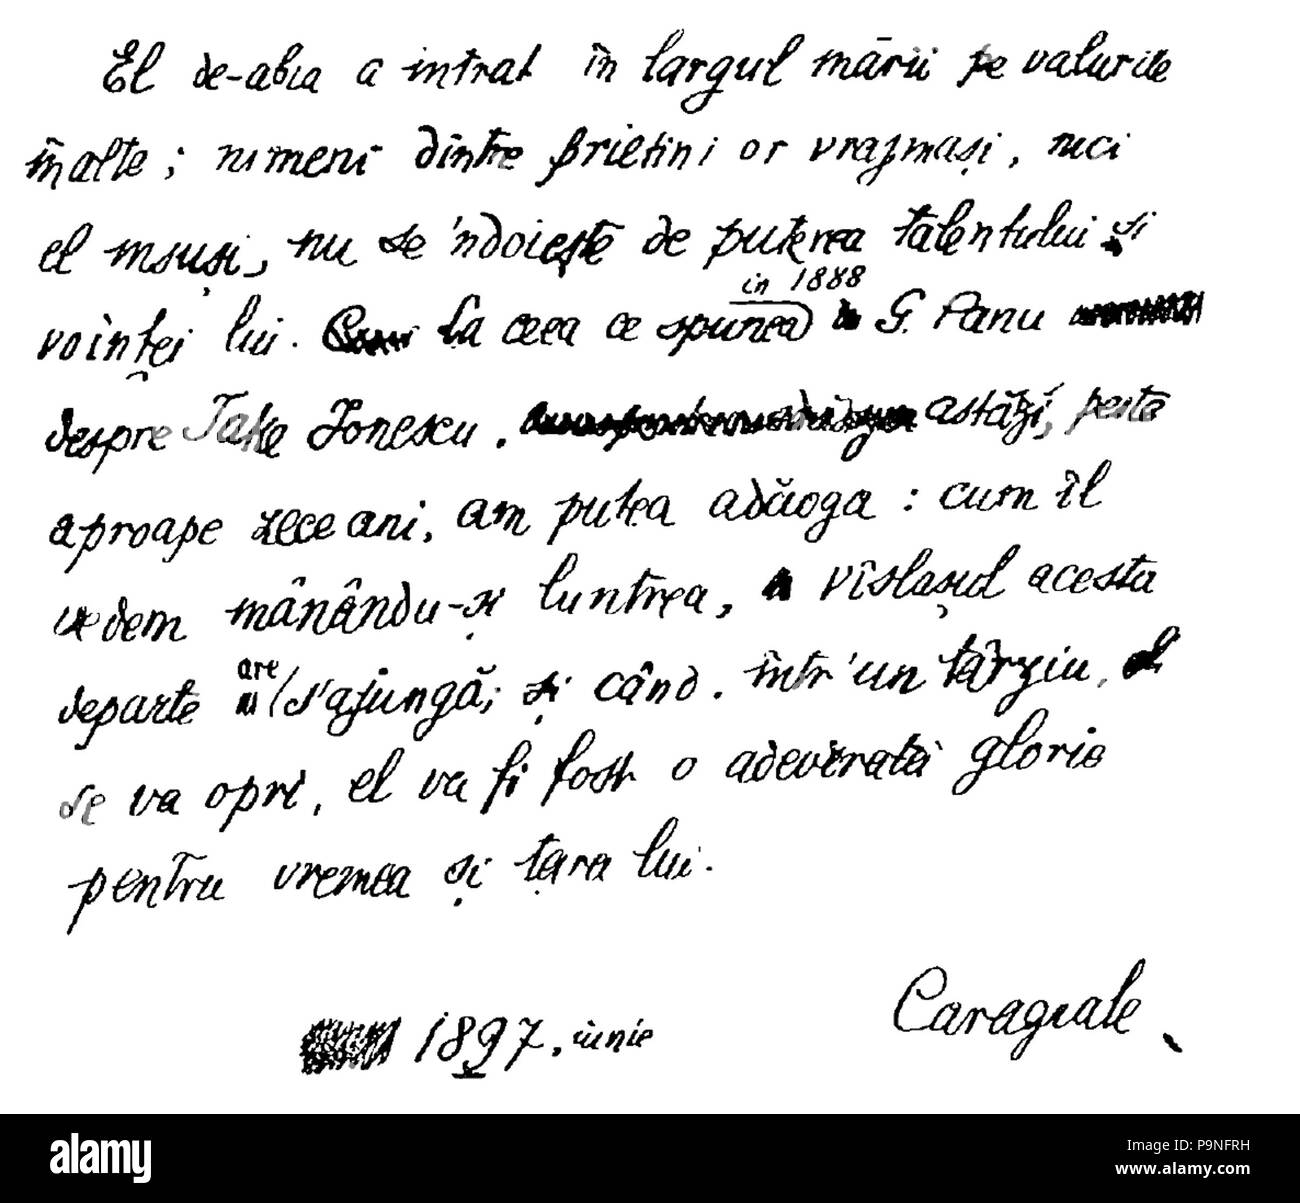 El de-abia a intrat în largul mării pe valurile
înalte; nimeni dintre prietini or vrajmași, nici
el însuși, nu se 'ndoiește de puterea talentului și
in 1888
voinței lui. La ceea ce spunea G. Panu
despre Take Ionescu. astăzi, peste
aproape zece ani, am putea adăoga: cum îl
vedem mânându-și luntrea, vîslașul acesta
are
departe s'ajungă; și când. într'un târziu,
se va opri, el va fi fost o adevărată glorie
pentru vremea și țara lui.
Caragiale
1897. iunie
alamy
Image ID: P9NFRH
www.alamy.com